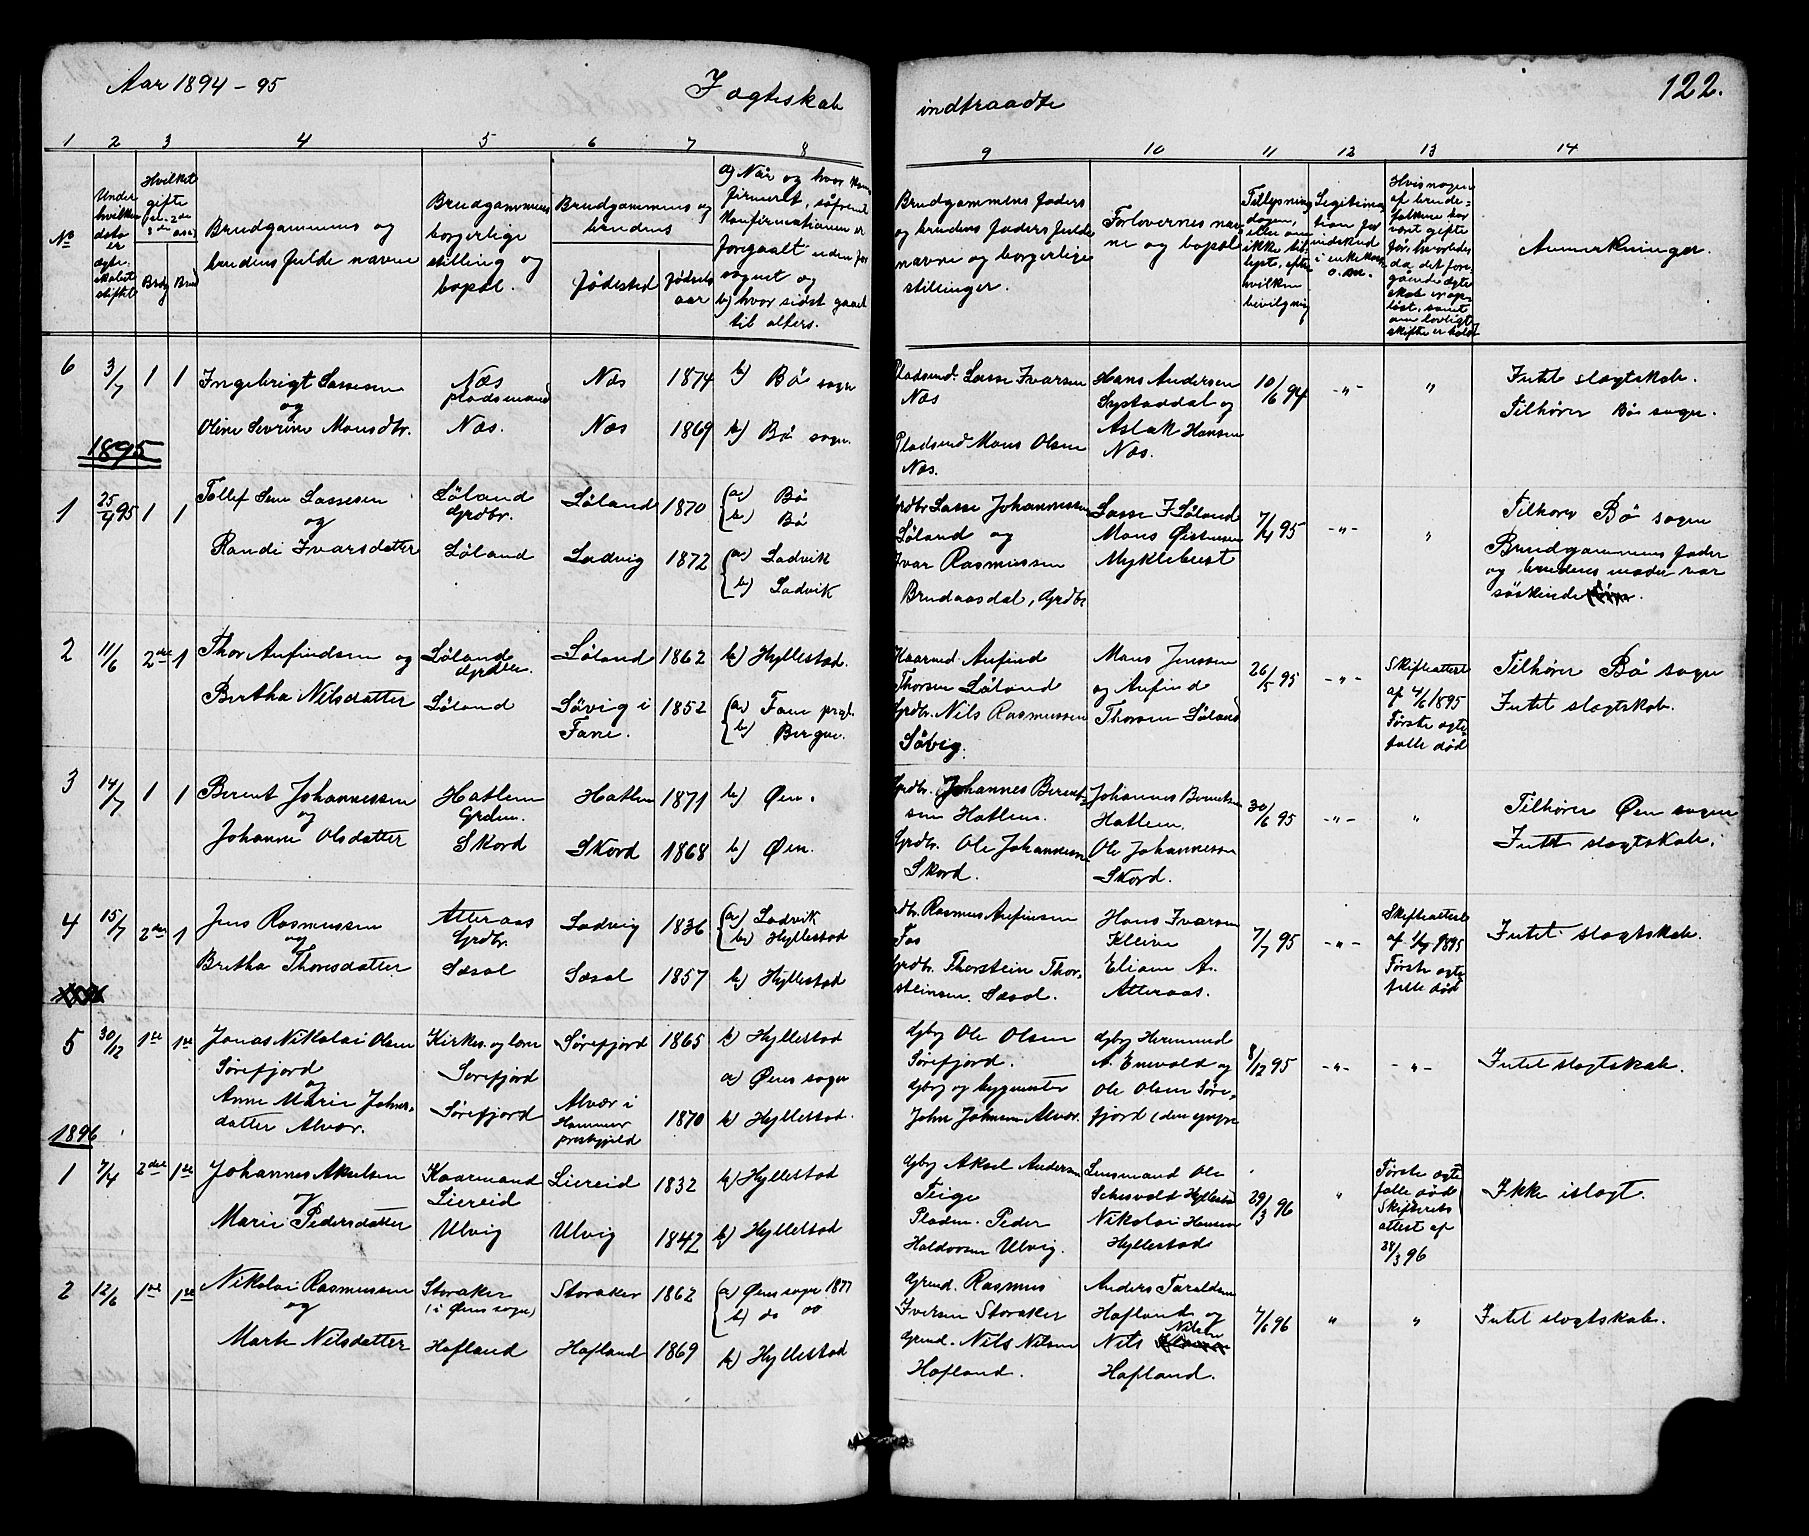 Aar 1894-95
I ægteskab
indtraadte
122.
1 2 3 4 5 6 7 8 9 10 11 12 13 14
No
Under hvilken dato er ægteskabet stiftet
Hvilket gifte
Brudg Brud
Brudgommens og brudens fulde navne
Brudgommens borgerlige stilling og bopæl.
Brudgommens og brudens
Fødested
Fødselsaar
a) Når og hvor konfirmeret, såfremt konfirmationen er foregaaet udenfor sognet og
b) hvor sidst gaaet til alters.
Brudgommens faders og brudens faders fulde navne og borgerlige stillinger.
Forlovernes navne og bopæl
Tillysningsdagen, eller om ikke tillyst, efter hvilken bevilgning
Anmerkninger.
6 3/7 1 1 Ingebrigt Lassesen
og
Oline Sevrine Monsdtr.
Næs pladsmand
Næs.
Næs 1874 b) Bø sogn
Næs 1869 b) Bø sogn.
Pladsmd. Lasse Ivarsen
Næs
Pladsmd Mons Olsen
Næs.
Hans Andersen
Systaddal og
Aslak Hansen
Næs.
10/6 94 -"- "
Intet slægtskab.
Tilhører Bø sogn.
1895
1 25/4 95 1 1 Tollef Sem Lassesen
og
Randi Ivarsdatter
Søland
Grdbr.
Søland
Søland 1870 (a) Bø
b) Bø
Ladvig 1872 (a) Ladvik
b) Ladvik
Grdbr Lasse Johannessen
Søland og
Ivar Rasmussen
Brudaasdal, Grdbr
Lasse I Søland
Mons Østensen
Myklebust
7/4 95 -"- "
Tilhører Bø sogn
Brudgommens fader
og brudens moder var
søskende.
2 11/6 2det 1 Thor Anfindsen og
Bertha Nilsdatter
Søland
Grdbr.
Søland
Søland 1862 b) Hyllestad.
Søvig i
Fane. 1852 (a) Fane prgl.
b) Bergen.
Kaarmd. Anfind
Thorsen Søland
Grdbr. Nils Rasmussen
Søvig.
Mons Jenssen
og Anfind
Thorsen Søland
26/5 95 -"-
Skifteattest
af 4/6 1895
Første ægte
fælle død
Tilhører Bø sogn
Intet slægtskab.
3 14/7 1 1 Berent Johannessen
og
Johanne Olsdatter
Hatlem
Grdm.
Skord
Hatlem 1871 b) Øen.
Skord 1868 b) Øen.
Grdbr. Johannes Berentsen Hatlem.
Grdbr. Ole Johannessen
Skord.
Johannes Berentsen
Hatlem.
Ole Johannessen
Skord.
30/6 95 -"- "
Tilhører Øen sogn
Intet slægtskab.
4 15/7 2det 1 Jens Rasmussen
og
Bertha Thorsdatter
Atteraas
Grdbr.
Sæsol
Ladvig 1836 (a) Ladvik
b) Hyllestad
Sæsol 1857 b) Hyllestad
Grdbr. Rasmus Anfinsen
Grdbr. Thorstein Thorsteinsen. Sæsol.
Hans Ivarsen
Kleive
Eliam A.
Atteraas.
7/7 95 -"-
Skifteattest
af 1/7 1895
Første ægte
fælle død
Intet slægtskab.
5 30/12 1ste 1ste Jonas Nikolai Olsen
Sørefjord
og
Anne Marie Johnsdatter Alvær.
Kirkes. og lærer
Sørefjord
Sørefjord
Sørefjord 1865 b) Hyllestad
a) Øens sogn
Alvær i
Hammer
prestegjeld 1870 b) Hyllestad.
Gbrg Ole Olsen
Sørefjord.
Gbrg og bygmester
John Johnsen Alvær.
Gbrg Hermund
A. Enevold og
Ole Olsen Sørefjord (den yngre
8/12 95 -"- -"-
Intet slægtskab.
1896
1 7/4 2det 1ste Johannes Akselsen
og
Marie Pedersdatter
Kaarmand
Liereid
Ulvig
Liereid 1832 b) Hyllestad
Ulvig 1842 b) Hyllestad
Gbrg Aksel Andersen
Teige
Pladsm. Peder
Haldorsen Ulvig.
Lensmand Ole
Nikolai Hansen
Hyllestad
29/3 96 "
Første ægte
fælle død
Skifterets
attest af
28/3 96
Ikke i slægt.
2 12/6 1ste 1ste Nikolai Rasmussen
og
Marte Nilsdatter
Storaker
(i Øens sogn)
Hofland
Storaker 1862 (a) Øens sogn 1877
b) do do
Hofland 1869 b) Hyllestad
Grmd. Rasmus
Iversen Storaker
Grmd. Nils Nilsen
Hofland.
Anders Taraldsen
Hofland og
Nils Nilsen
Hofland.
7/6 96 " "
Intet slægtskab.